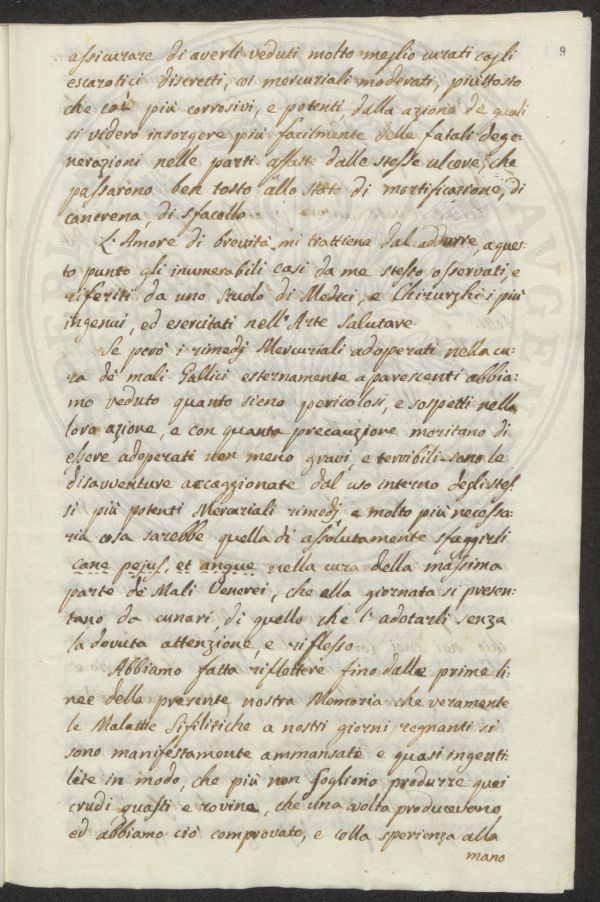 9
assicurare di averli veduti molto meglio curati cogli
escarotici discretti, coi mercuriali moderati, piuttosto
che coi più corrosivi, e potenti, dalla azione de quali
si videro insorgere più facilmente delle fatali dege-
nerazioni nelle parti affatte dalle stesse ulcere, che
passarono ben tosto allo stato di mortificazione, di
cancrena, di sfacello.
L'Amore di brevità mi trattiene dal addurre, a ques-
to punto gli inumerabili casi da me stesso osservati, e
riferiti da uno stuolo di Medici, e Chirurghi i più
ingenui, ed esercitati nell'Arte salutare.
Se però i rimedj Mercuriali adoperati nella cu-
ra de mali Gallici esternamente apparescenti abbia-
mo veduto quanto sieno pericolosi, e sospetti nella
loro azione, e con quanta precauzione meritano di
essere adoperati non meno gravi, e terribili sono le
disavventure accagionate dal uso interno degli stes-
si più potenti Mercuriali rimedj e molto più necessa-
ria cosa sarebbe quella di assolutamente sfuggirli
cane pejus, et angue nella cura della massima
parte de Mali Venerei, che ella giornata si presen-
tano da curarsi, di quello che l'adotarli senza
la dovuta attenzione, e riflesso.
Abbiamo fatta riflettere fino dalle prime li-
nee della presente nostra Memoria che veramente
le Malattie Sifilitiche a nostri giorni regnanti si
sono manifestamente ammansate e quasi ingenti-
lite in modo, che più non sogliono produrre quei
crudi guasti e rovine, che una volta producevano
ed abbiamo ciò comprovato, e colla sperienza alla
mano